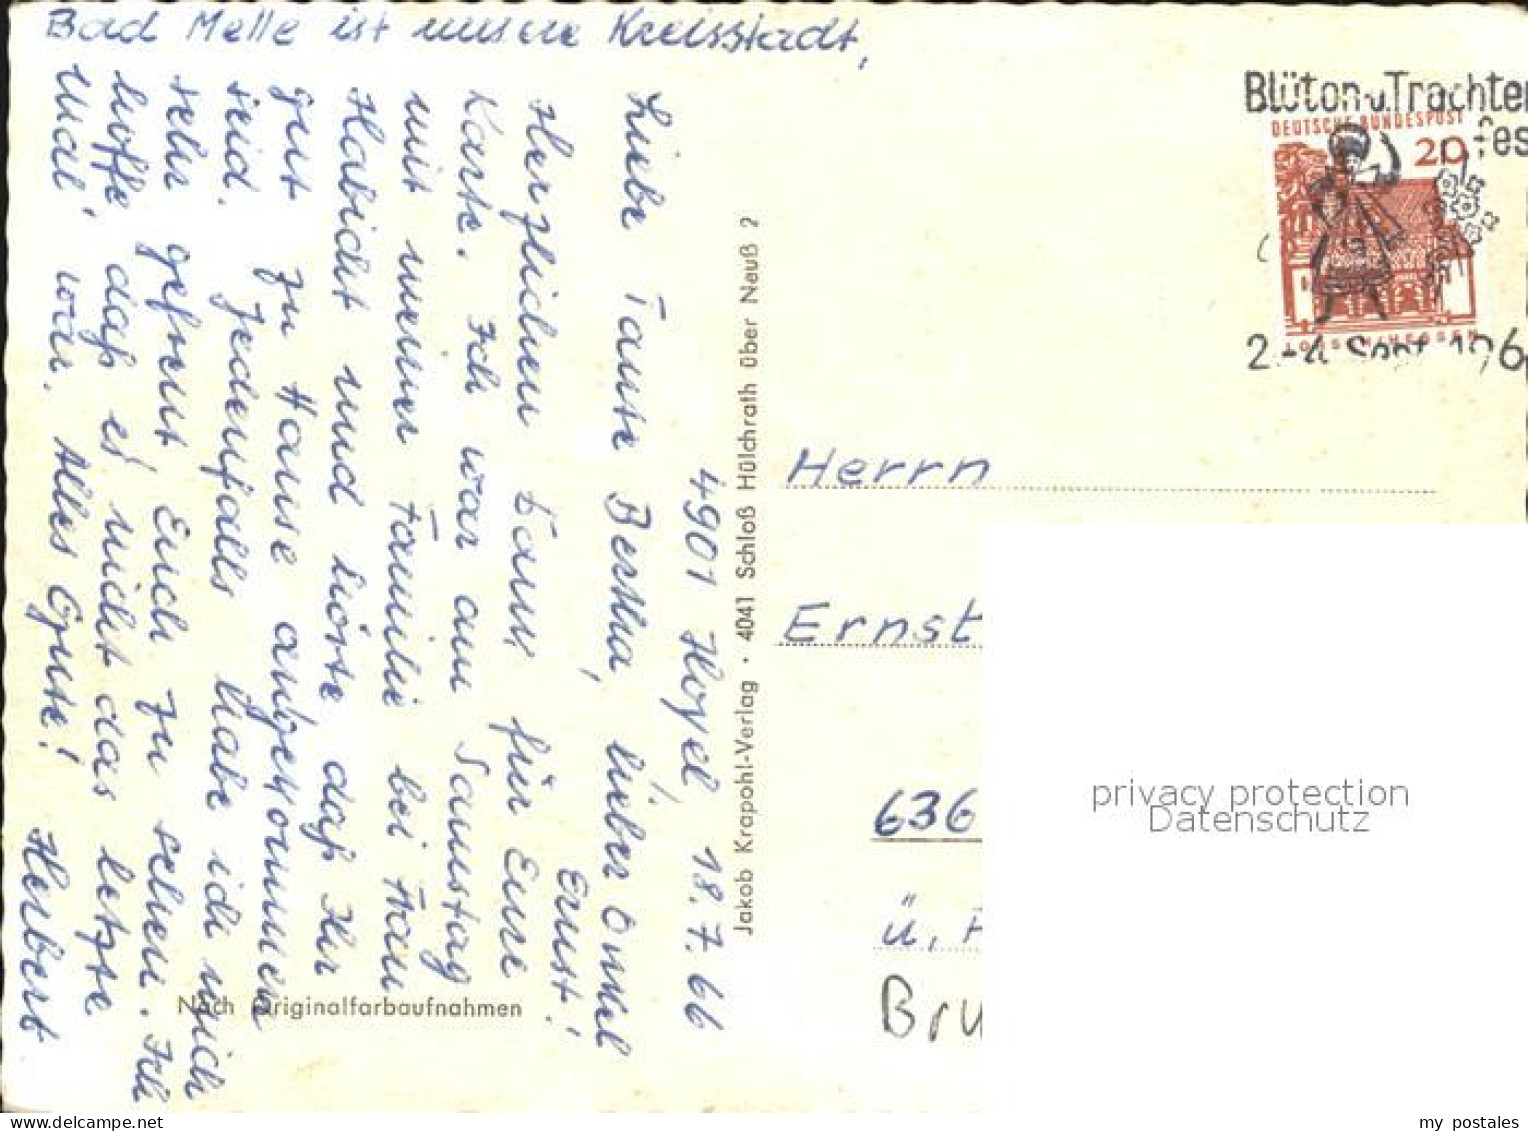 Bad Melle ist unsere Kreisstadt,
4901 Hoyel, 18.7.66
Liebe Tante Bertha, lieber Onkel
Ernst!
Herzlichen Dank für Eure
Karte. Ich war am Samstag
mit meiner Familie bei Frau
Habicht und hörte daß Ihr
gut zu Hause angekommen
seid. Jedenfalls habe ich mich
sehr gefreut, Euch zu sehen. Ich
hoffe daß es nicht das letzte
mal war. Alles Gute! Herbert
Nach Originalfarbaufnahmen
Jakob Krapohl-Verlag · 4041 Schloß Hülchrath über Neuß 2
Blüten-u.Trachten
fes
DEUTSCHE BUNDESPOST
20
LORSCH/HESSEN
2.-4. Sept. 196
Herrn
Ernst
636
ü.
Bru
privacy protection
Datenschutz
my postales